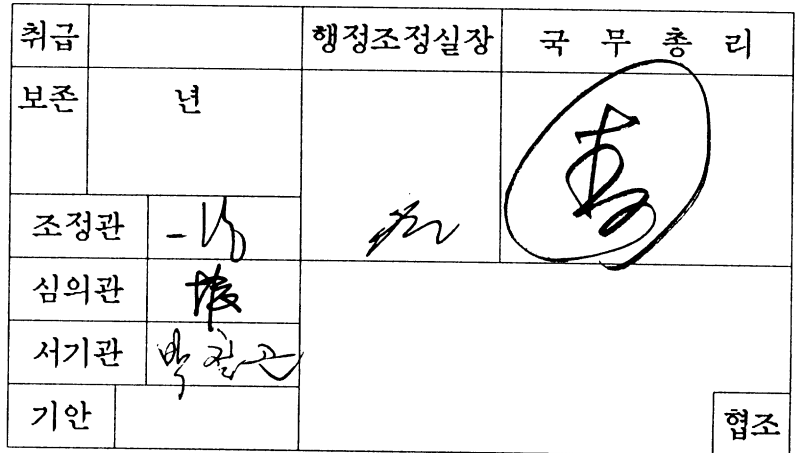 취급 행정조정실장 국 무 총 리
보존 년
조정관
심의관
서기관
기안 협조